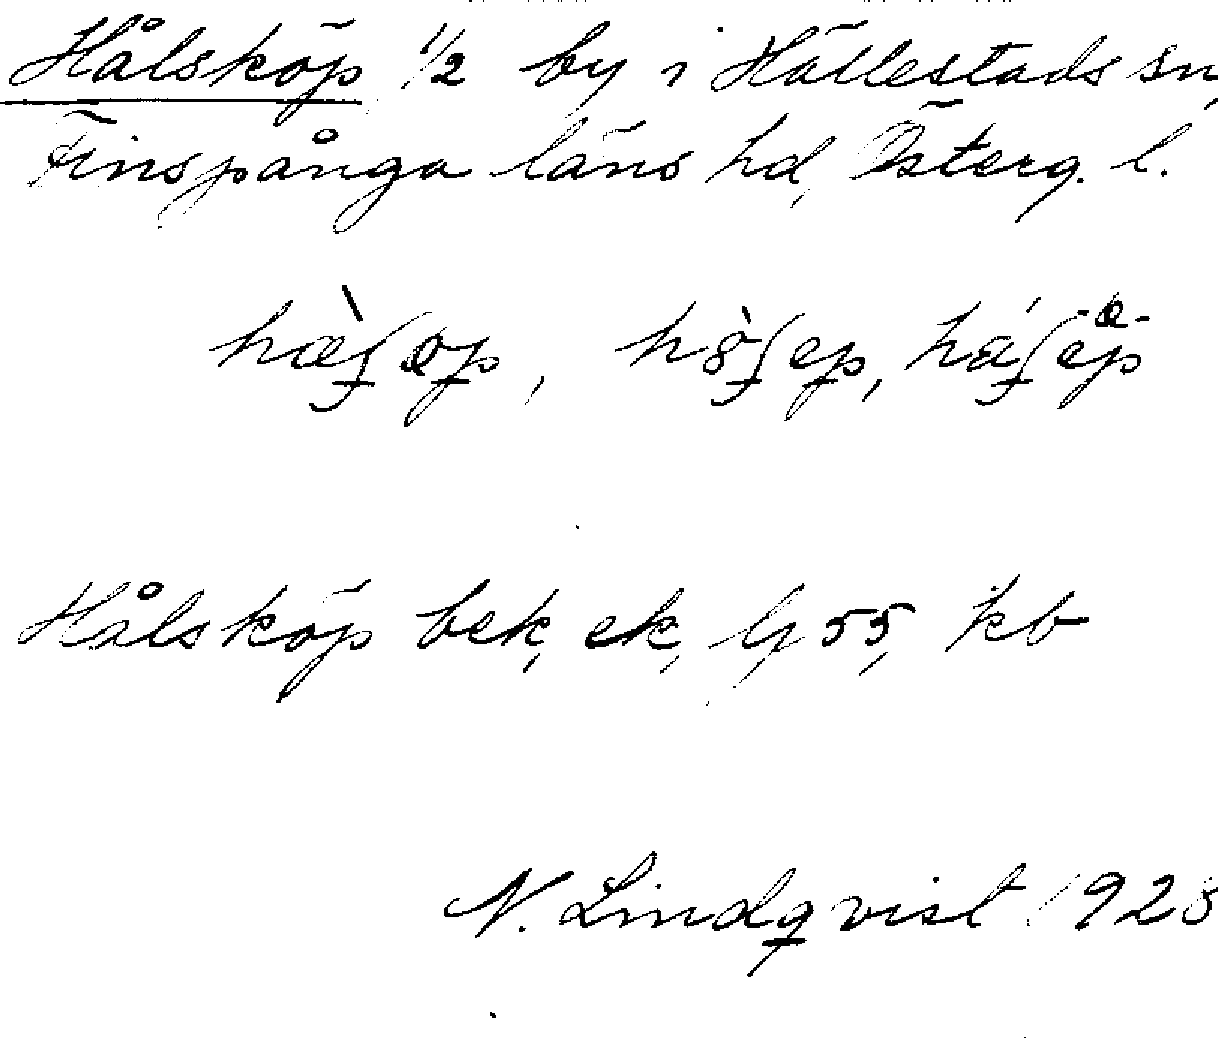 Hålsköp 1/2 by i Hällestads sn,
Finspånga läns hd, Österg. l.
Hålsköp bek, ek, lj 55, kb
N. Lindqvist 1928